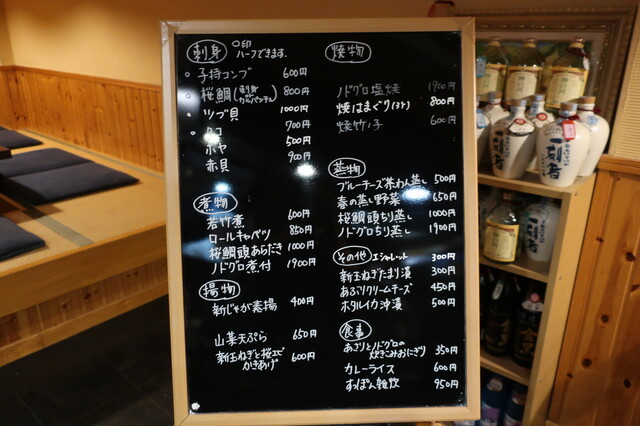 刺身 ○印ハーフできます。
○子持コンブ 600円
○桜鯛 800円
○ツブ貝 1000円
○タコ 700円
ホヤ 500円
赤貝 900円
煮物
若竹煮 600円
ロールキャベツ 850円
桜鯛頭あらだき 1000円
ノドグロ煮付 1900円
揚物
新じゃが素揚 400円
山菜天ぷら 650円
新玉ねぎと桜エビ
かきあげ 600円
焼物
ノドグロ塩焼 1900円
焼はまぐり 800円
焼竹ノ子 600円
蒸物
ブルーチーズ茶わん蒸し 500円
春の蒸し野菜 650円
桜鯛頭ちり蒸し 1000円
ノドグロちり蒸し 1900円
その他 エシャレット 300円
新玉ねぎたまり漬 300円
あぶりクリームチーズ 450円
ホタルイカ沖漬 500円
食事
あさりとノドグロの
炊きこみおにぎり 350円
カレーライス 600円
すっぽん雑炊 950円
一刻者